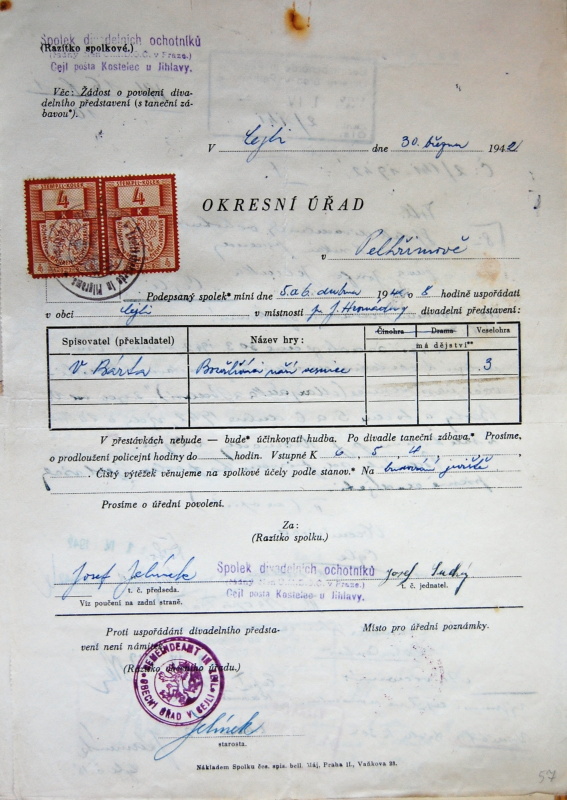 Spolek divadelních ochotníků
(Razítko spolkové.)
Cejl pošta Kostelec u Jihlavy.
Věc: Žádost o povolení diva-
delního představení (s taneční zá-
bavou*).
V Cejli dne 30. března 1942
STEMPEL-KOLEK STEMPEL-KOLEK
4 4
K K
OKRESNÍ ÚŘAD
v Pelhřimově
Podepsaný spolek* míní dne 5. a 6. dubna 194 o 8 hodině uspořádati
v obci Cejli v místnosti p. J. Hromádky divadelní představení:
Spisovatel (překladatel) Název hry: Činohra Drama Veselohra
má dějství**
V. Bárta naší vesnice 3
V přestávkách nebude — bude* účinkovati hudba. Po divadle taneční zábava.* Prosíme,
o prodloužení policejní hodiny do hodin. Vstupné K 6, 5, 4.
Čistý výtěžek věnujeme na spolkové účely podle stanov.* Na jeviště
Prosíme o úřední povolení.
Za:
(Razítko spolku.)
Josef Jelínek Spolek divadelních ochotníků Josef Suchý
t. č. předseda. Cejl pošta Kostelec u Jihlavy. t. č. jednatel.
Viz poučení na zadní straně.
Proti uspořádání divadelního předsta-
vení není námitek.
Místo pro úřední poznámky.
(Razítko obecního úřadu.)
GEMEINDEAMT IN
OBECNÍ ÚŘAD V CEJLI
Jelínek
starosta.
Nákladem Spolku čes. spis. bell. Máj, Praha II., Vaňkova 23.
57